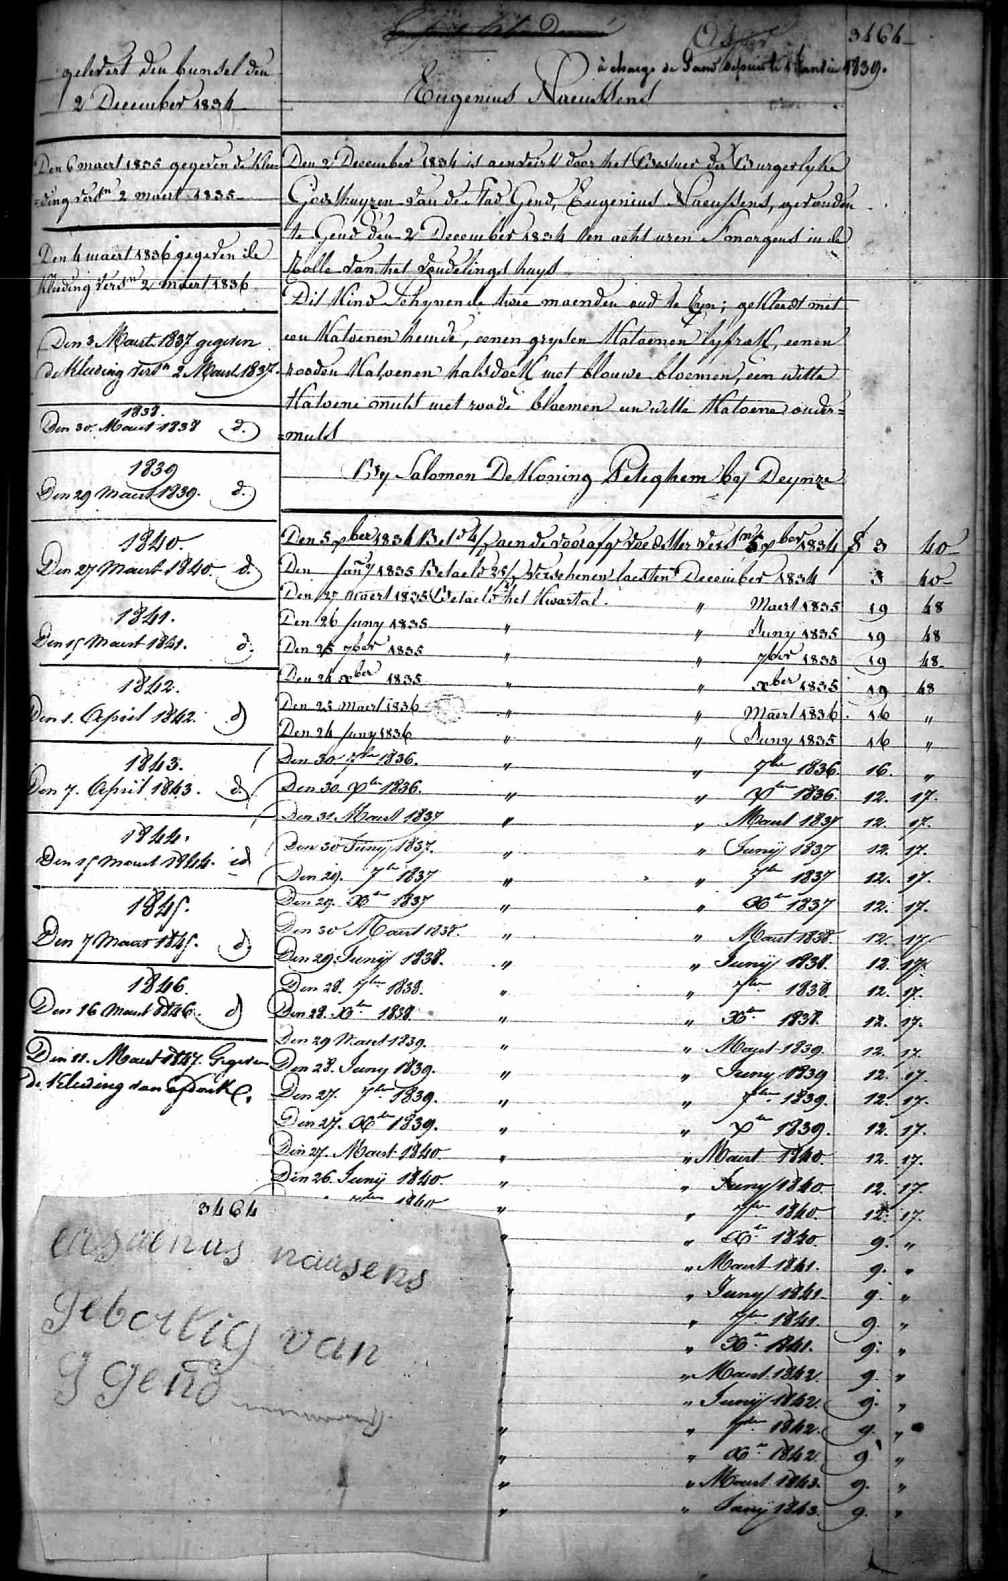 3464
à charge de Gand depuis le 1 Janvier 1839.
Eugenius Naeussens
gelevert den bunsel den
2 December 1834
Den 6 maert 1835 gegeven de klee
=ding versn 2 maert 1835
Den 4 maert 1836 gegeven de
kleeding versn 2 maert 1836
Den 3 Maart 1837 gegeven
de kleeding versn 2 Maart 1837.
1838.
Den 30 Maart 1838 d.
1839
Den 29 Maart 1839. d.
1840.
Den 27 Maart 1840. d.
1841.
Den 15 Maart 1841. d.
1842.
Den 1. April 1842. d.
1843.
Den 7. April 1843. d.
1844.
Den 15 Maart 1844. id
1845.
Den 7 Maart 1845. d.
1846.
Den 16 Maart 1846. d.
Den 11. Maart 1847. Gegeven
de kleeding van
Den 2 December 1834 is aenveirt door het Bestuer der Burgerlyke
Godshuyzen van de Stad Gend, Eugenius Naeussens, gevonden
te Gend den 2 December 1834 ten acht uren s'morgens in de
Rolle van het vondelingshuys
Dit Kind schynende twee maenden oud te zyn; gekleedt met
een Katoenen hemde, eenen grysen Katoenen lyfrak, eenen
rooden Katoenen halsdoek met blouwe bloemen, een witte
Katoene muts met roode bloemen en witte Katoene onder=
=muts
Bij Salomon De Koning Peteghem by Deynze
Den 5 xber 1834 Bet aen de voorafge 1834 f 3 40
Den Jany 1835 Betaelt verschenen laesten December 1834 3 40
Den 27 maert 1835 Betaelt het Kwartal. " Maert 1835 19 48
Den 26 Juny 1835 " " Juny 1835 19 48
Den 25 7ber 1835 " " 7ber 1835 19 48
Den 24 xber 1835 " " xber 1835 19 48
Den 25 maert 1836 " " Maert 1836 16 "
Den 24 Juny 1836 " " Juny 1835 16 "
Den 30 7ber 1836. " " 7ber 1836. 16. "
Den 30. Xber 1836. " " Xber 1836. 12. 17.
Den 31 Maart 1837 " " Maart 1837 12. 17.
Den 30 Junij 1837. " " Junij 1837 12. 17.
Den 29. 7ber 1837 " " 7ber 1837 12. 17.
Den 29. Xber 1837 " " Xber 1837 12. 17.
Den 30 Maart 1838. " " Maart 1838. 12. 17.
Den 29. Junij 1838. " " Junij 1838. 12. 17.
Den 28. 7ber 1838. " " 7ber 1838. 12. 17.
Den 28. Xber 1838. " " Xber 1838. 12. 17.
Den 29 Maart 1839. " " Maart 1839. 12. 17.
Den 28. Juny 1839. " " Juny 1839 12. 17.
Den 27. 7ber 1839. " " 7ber 1839. 12. 17.
Den 27. Xber 1839. " " Xber 1839. 12. 17.
Den 27. Maart 1840 " " Maart 1840. 12. 17.
Den 26. Junij 1840 " " Juny 1840. 12. 17.
7ber 1840 " " 7ber 1840. 12. 17.
" " Xber 1840. 9. "
" Maart 1841. 9. "
" " Juny 1841. 9. "
" " 7ber 1841. 9. "
" " Xber 1841. 9. "
" Maart 1842. 9. "
" Junij 1842. 9. "
" " 7ber 1842. 9. "
" " Xber 1842. 9. "
" " Maart 1843. 9. "
" " Junij 1843. 9. "
3464
eugenius nausens
gebortig van
g gend